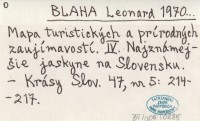 BLAHA Leonard 1970...
Mapa turistických a prírodných
zaujímavostí. IV. Najznámej-
šie jaskyne na Slovensku.
- Krásy Slov. 47, no 5: 214-
-217.